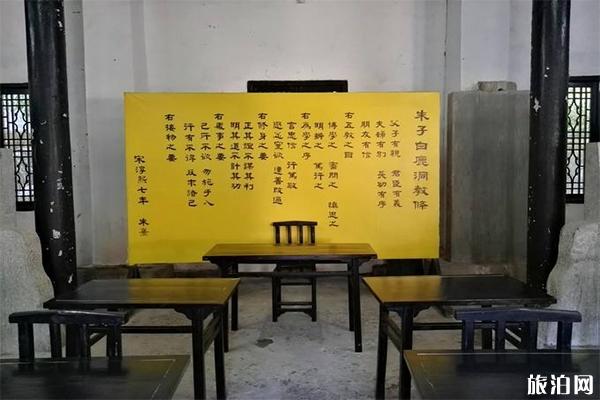 朱子白鹿洞教條
父子有親 君臣有義
夫婦有別 長幼有序
朋友有信
右五教之目
博學之 審問之 謹思之
明辨之 篤行之
右為學之序
言忠信 行篤敬
懲忿窒欲 遷善改過
右修身之要
正其誼不謀其利
明其道不計其功
右處事之要
己所不欲 勿施于人
行有不得 反求諸己
右接物之要
宋淳熙七年 朱熹
旅泊网